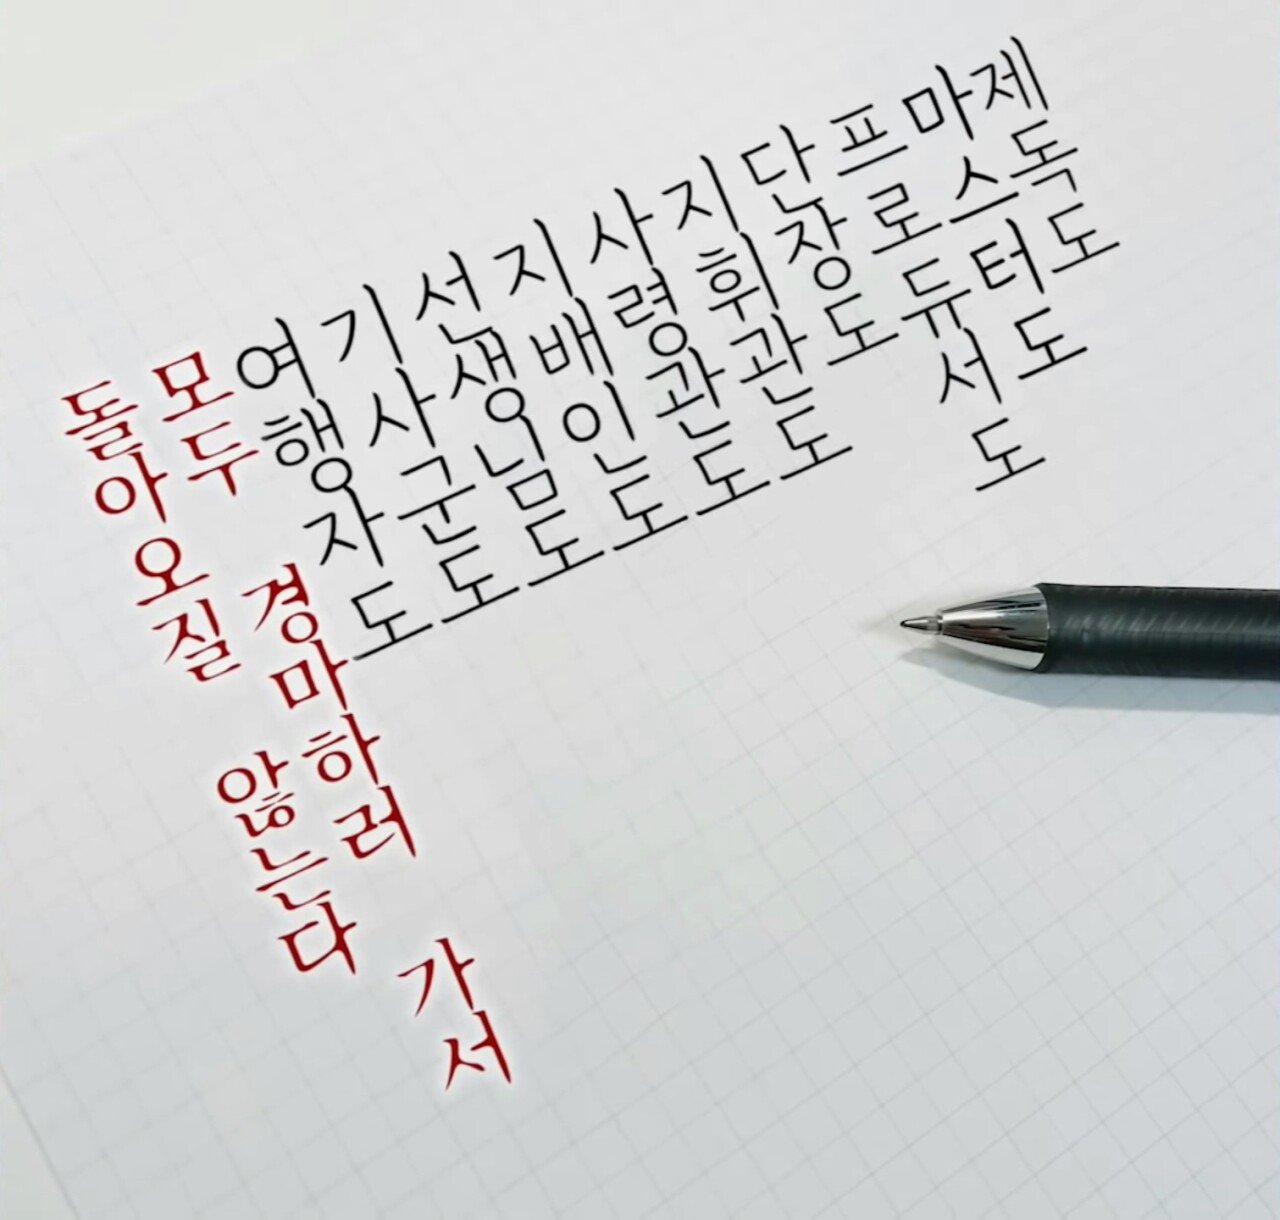 제독도
마스터도
프로듀서도
단장도
지휘관도
사령관도
지배인도
선생님도
기사군도
여행자도
모두 경마하러 가서
돌아오질 않는다